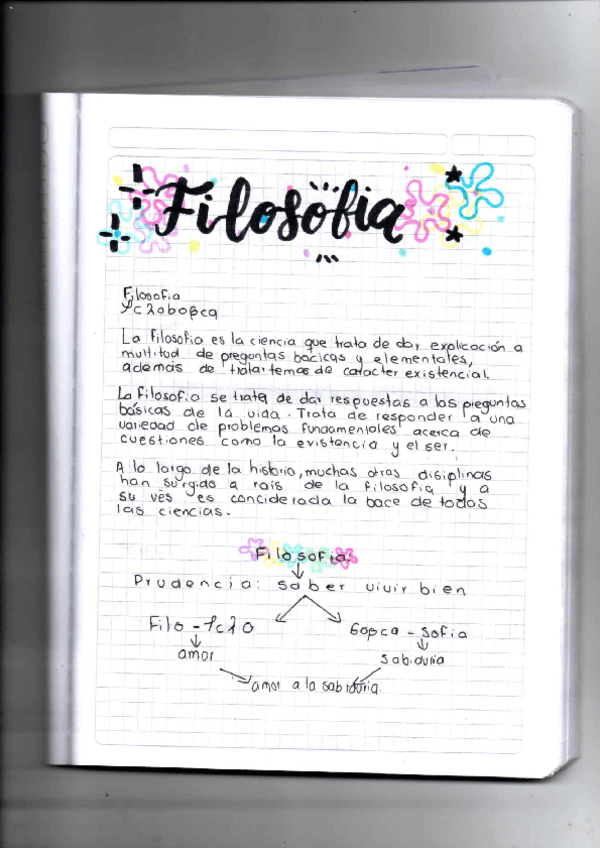 Filosofia
Filosofia
φcλoboφca
La filosofia es la ciencia que trata de dar explicación a
multitud de preguntas bacicas y elementales,
ademais de tratar temas de caracter existencial.
La filosofia se trata de dar respuestas a las preguntas
básicas de la vida. Trata de responder a una
variedad de problemas fundamentales acerca de
cuestiones como la existencia y el ser.
A lo largo de la historia, muchas otras disiplinas
han surgido a rais de la filosofia y a
su vés es conciderada la bace de todas
las ciencias.
Filosofia.
Prudencia: saber vivir bien
Filo - φcλo
боφca - sofia
amor
sabiduria
amor a la sabiduria.